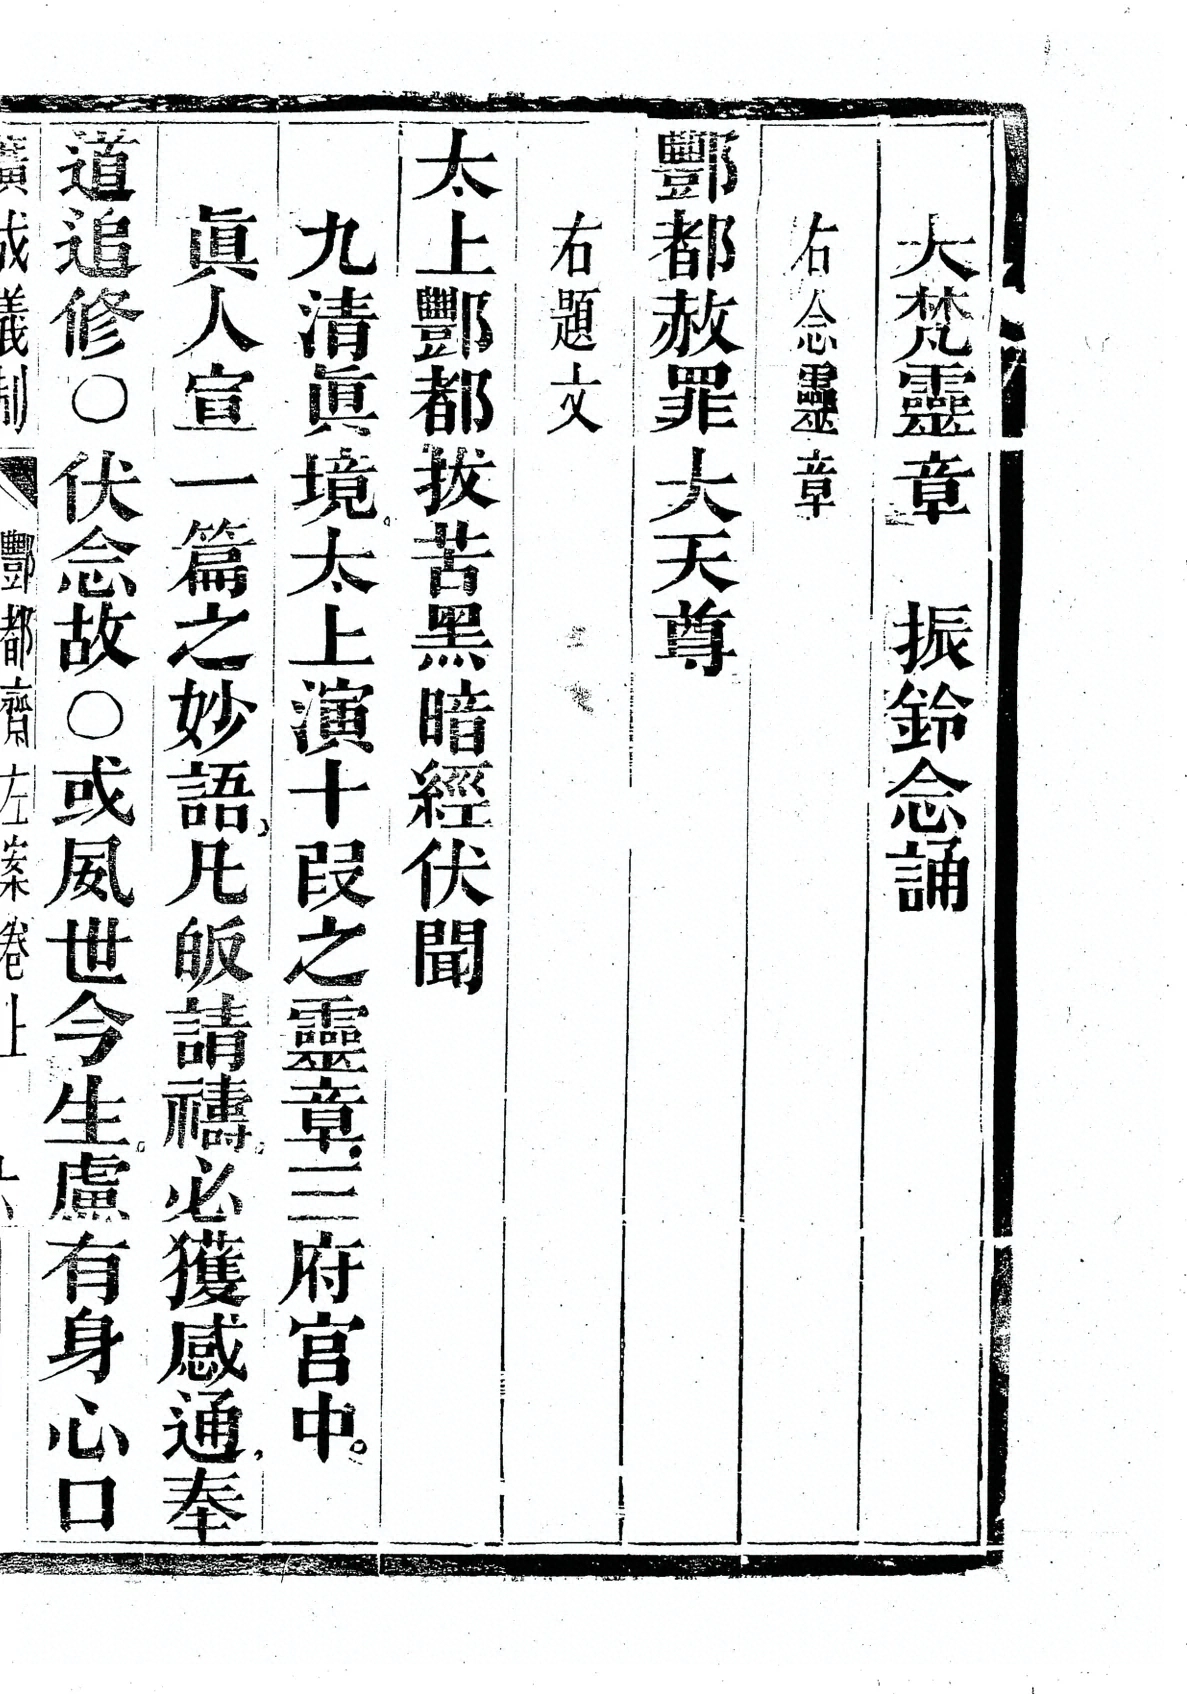 大梵靈章　振鈴念誦
右念靈章
酆都赦罪大天尊
右題文
太上酆都拔苦黑暗經伏聞
九清眞境。太上演十段之靈章。三府宫中。
眞人宣一篇之妙語，凡皈請禱。必獲感通，奉
道追修○伏念故○或夙世今生。慮有身心口
廣成儀制　酆都齋左案卷上　六